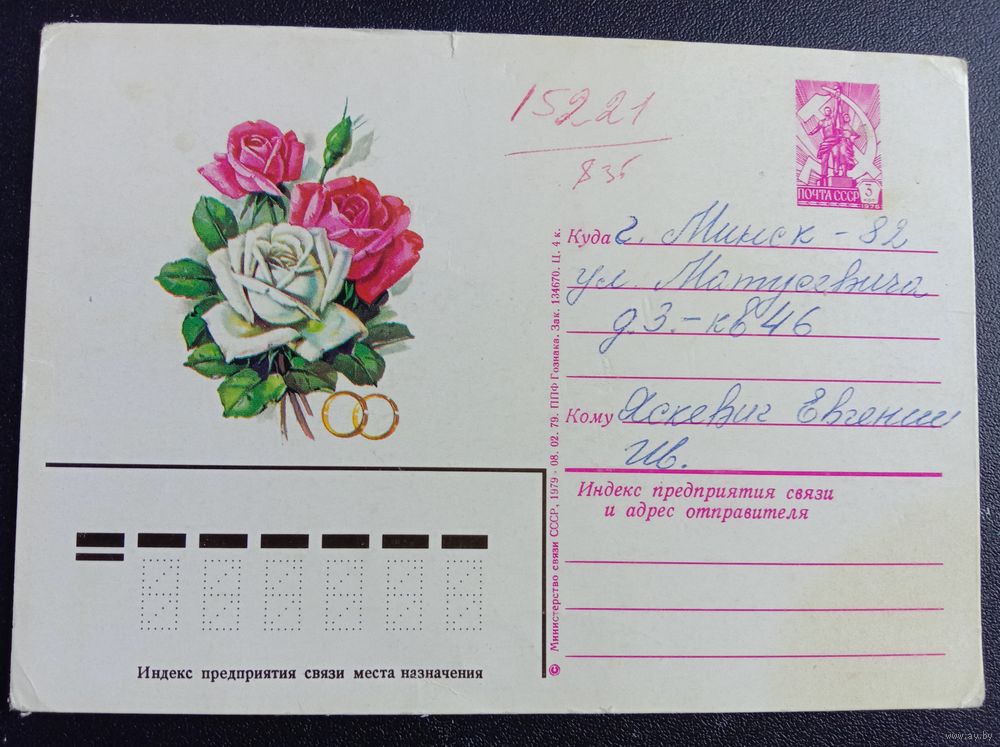 15221
835
ПОЧТА СССР
3
КОП
1976
Куда г. Минск - 82
ул. Матусевича
д. 3. - кв 46
Кому Яскевич Евгении
Ив.
Индекс предприятия связи
и адрес отправителя
© Министерство связи СССР, 1979 - 08. 02. 79. ППФ Гознака. Зак. 134670. Ц. 4 к.
Индекс предприятия связи места назначения
www.ay.by